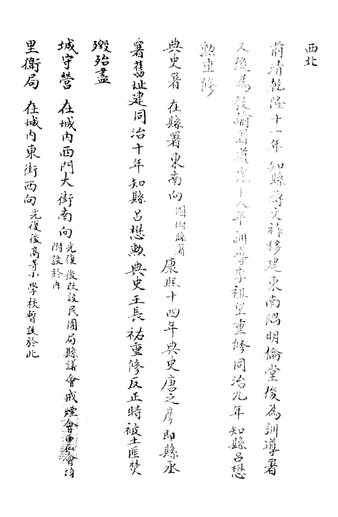 西北
前清乾隆十一年知縣蔚文祚移建東南隅明倫堂後為訓導署
又後為教諭署道光十八年訓導李祖望重修同治九年知縣呂懋
勲重修
典史署 在縣署東南向 康熙十四年典史唐之彥即縣丞
署舊址建同治十年知縣呂懋勲典史王長祐重修反正時被土匪焚
毀殆盡
城守營 在城內西門大街南向 光復後改設民團局縣議會戒煙會 附設於內
里衛局 在城內東街西向 光復後高等小學校暫設於此